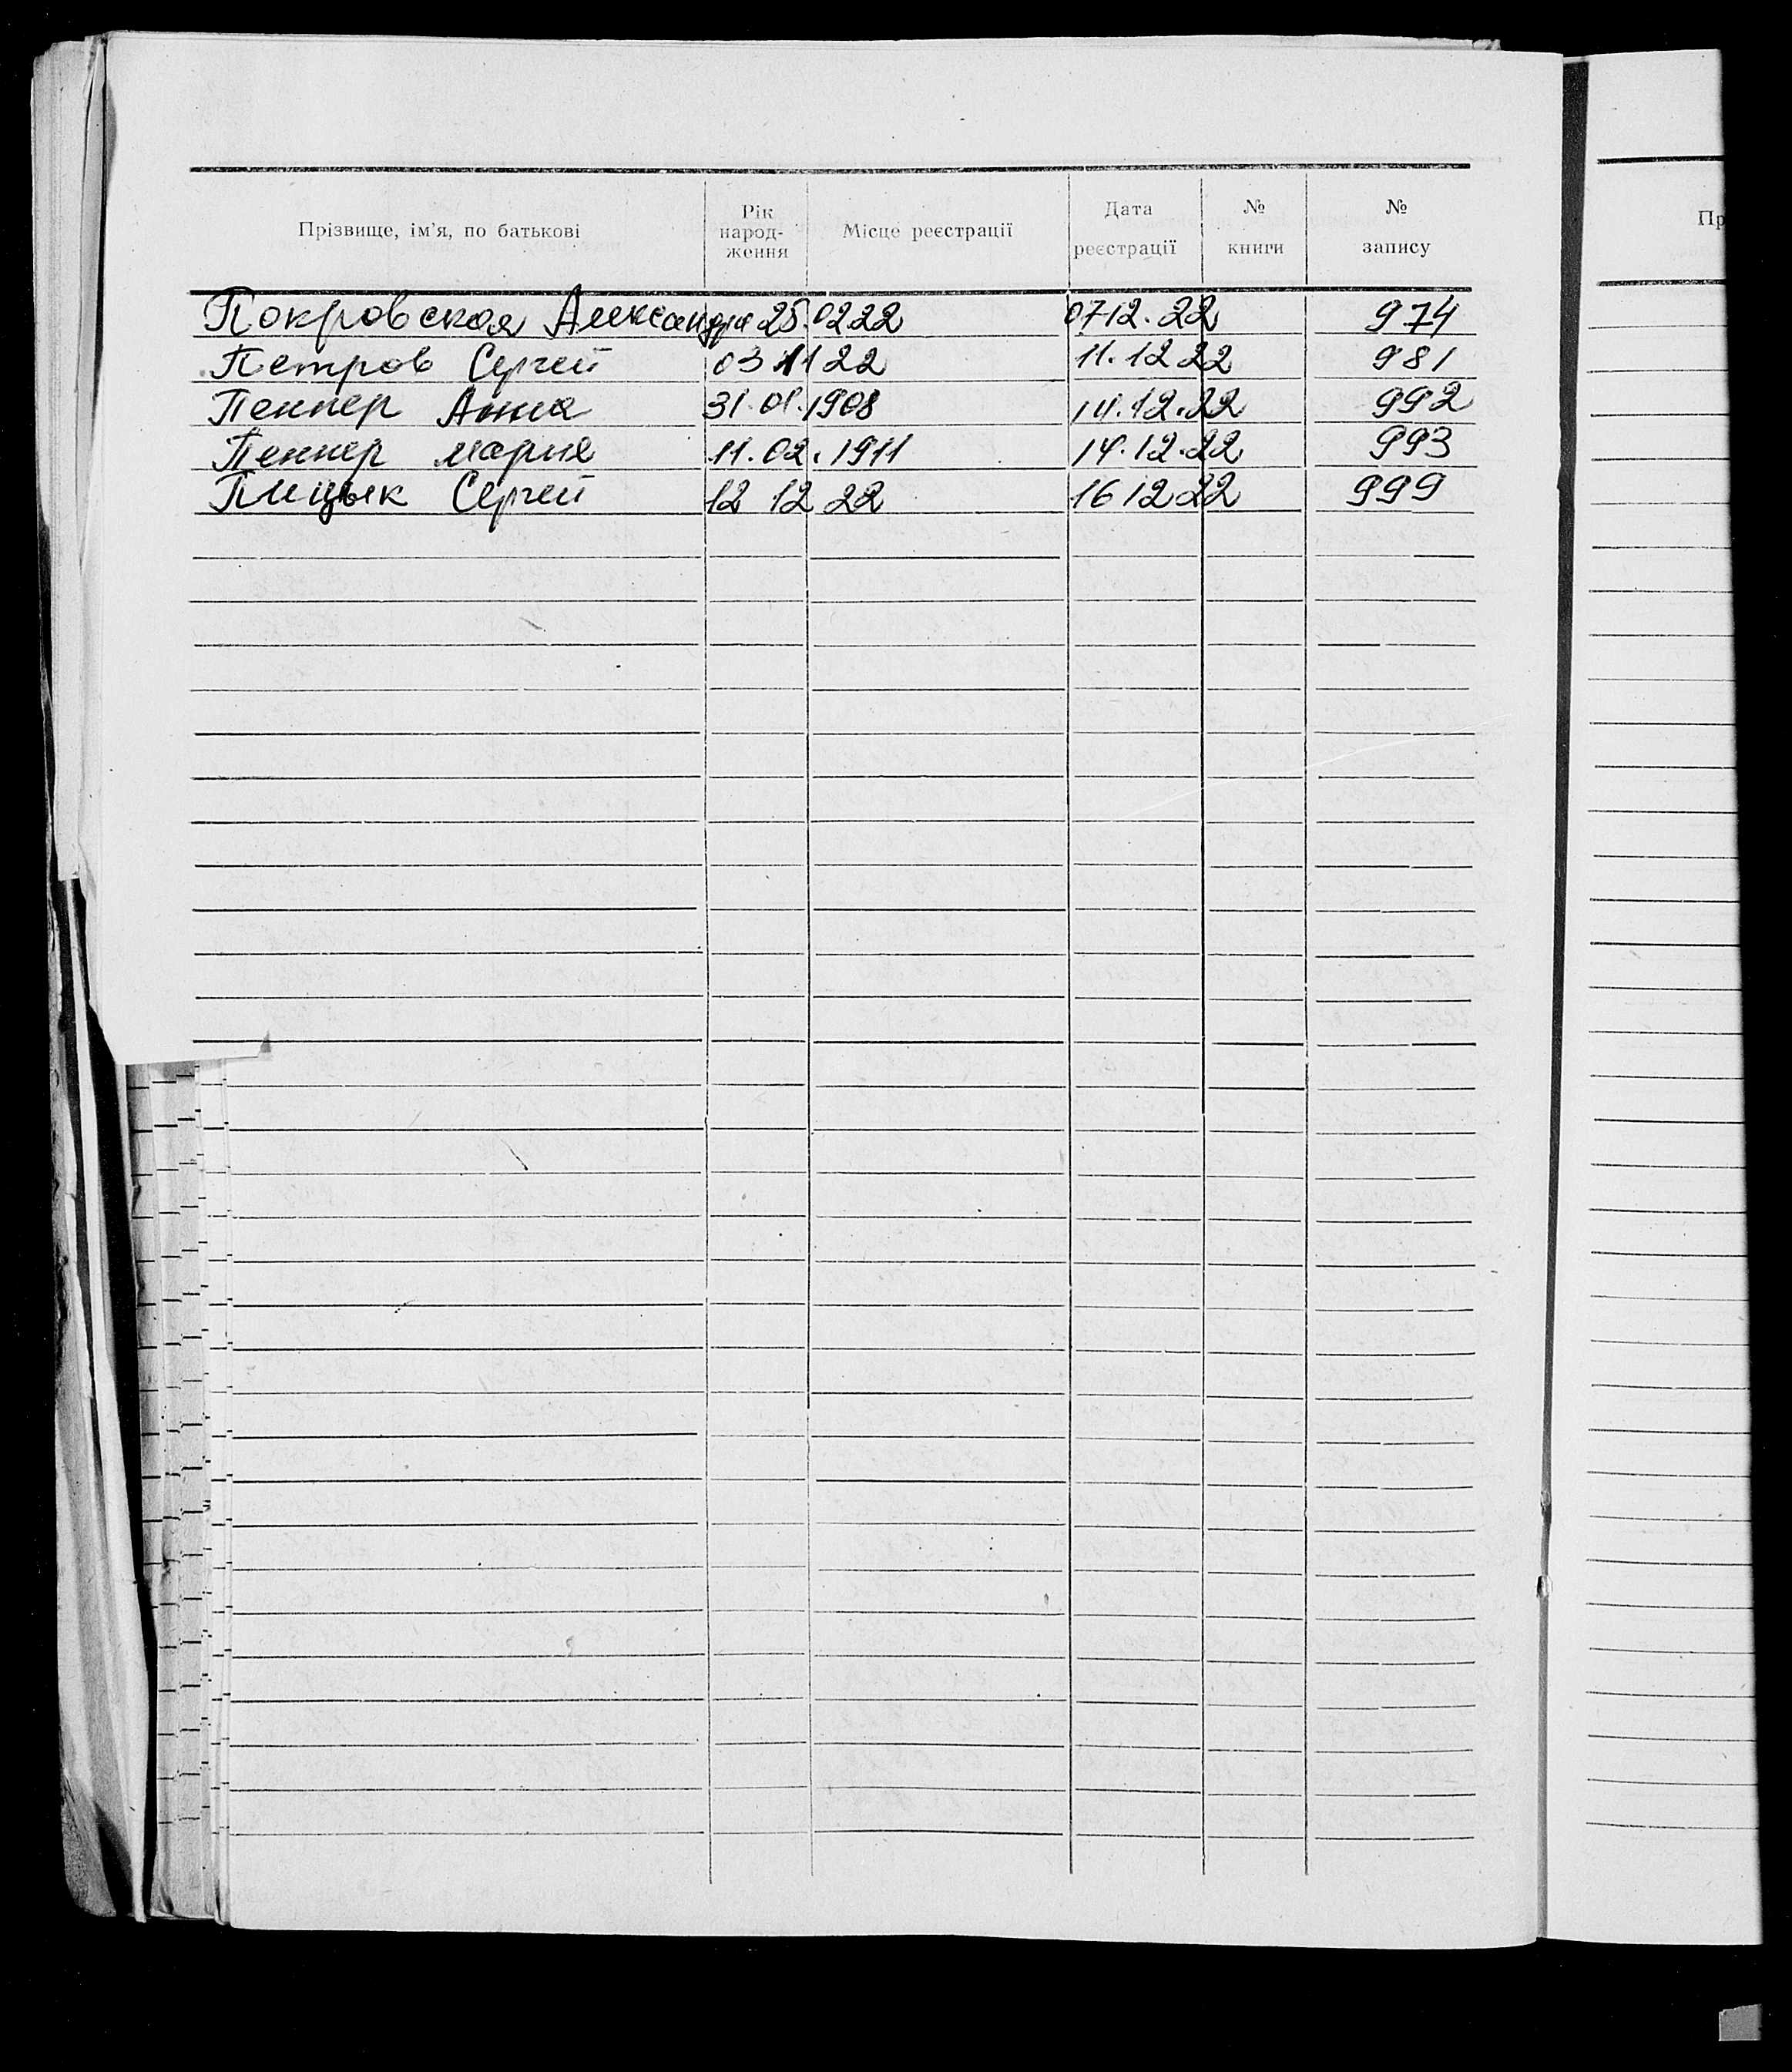 Прізвище, ім'я, по батькові Рік народ-ження Місце реєстрації Дата реєстрації № книги № запису
Пр
Покровская Александра 25.02.22 07 12. 22 974
Петров Сергей 03 11 22 11. 12 22 981
Пеннер Анна 31.01.1908 14.12.22 992
Пеннер Мария 11.02.1911 14.12.22 993
Пицык Сергей 12 12 22 16 12 22 999